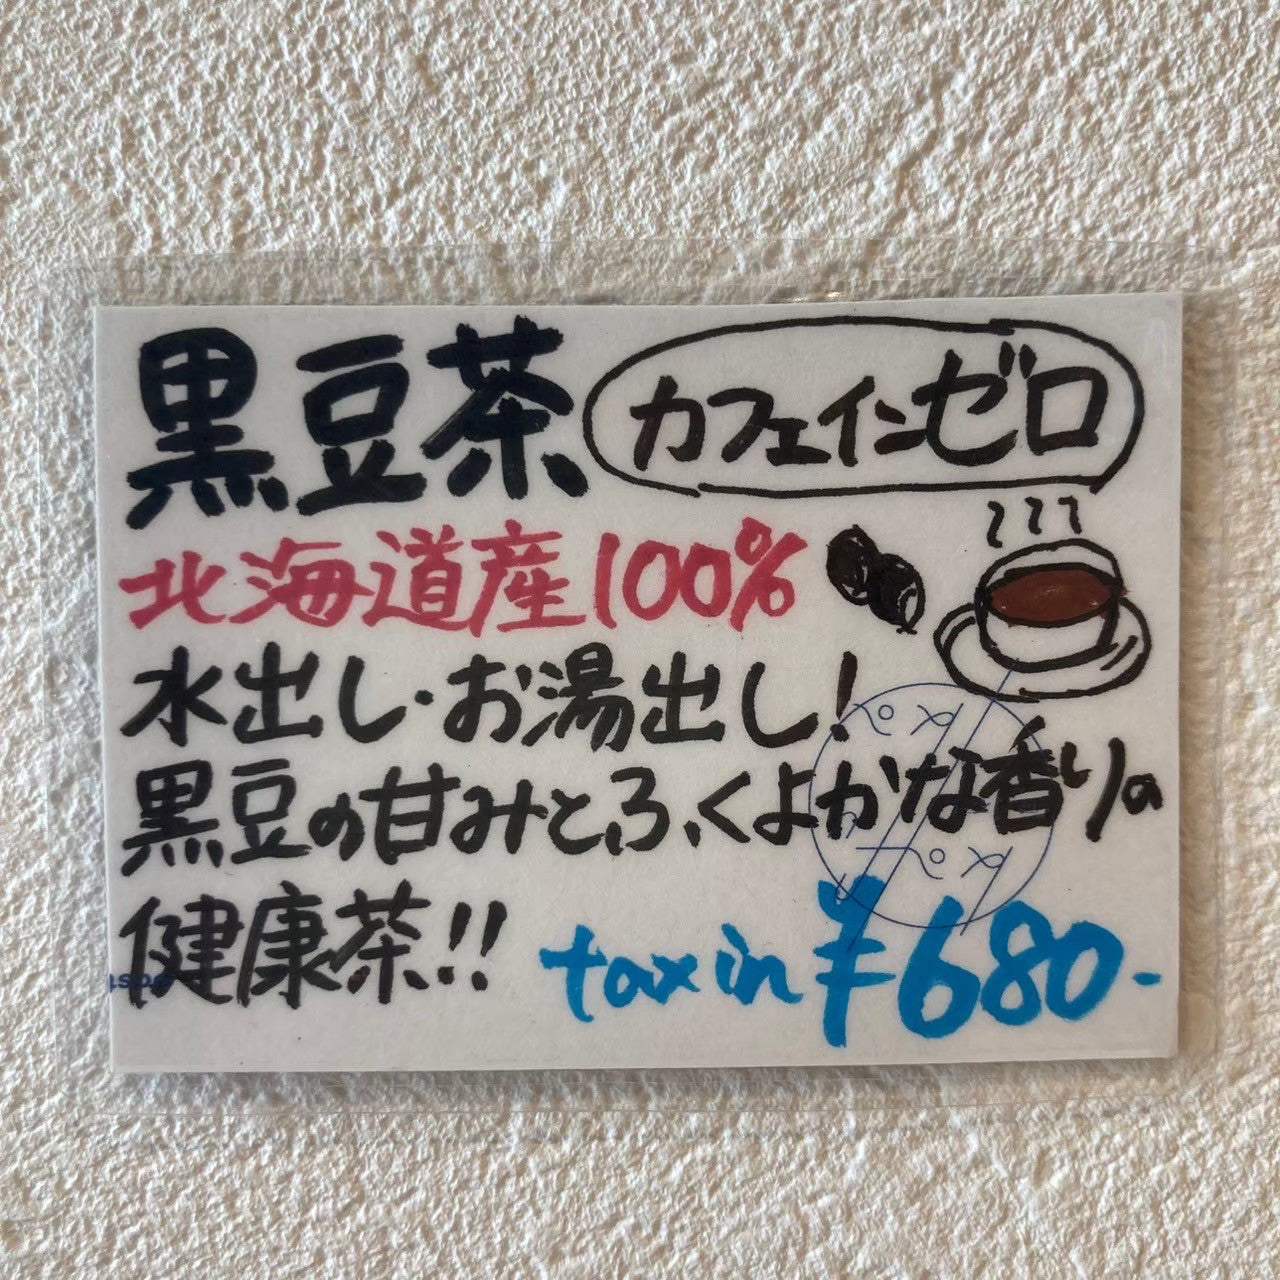 黒豆茶 カフェインゼロ
北海道産100%
水出し・お湯出し!
黒豆の甘みと、ふくよかな香りの
健康茶!!
tax in ¥680-